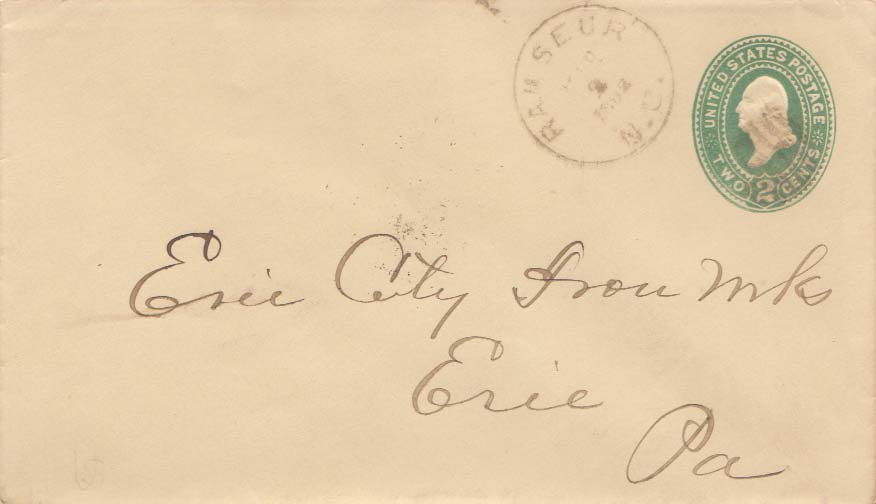 RAMSEUR
N.C.
UNITED STATES POSTAGE
TWO 2 CENTS
Erie City Iron Wks
Erie
Pa